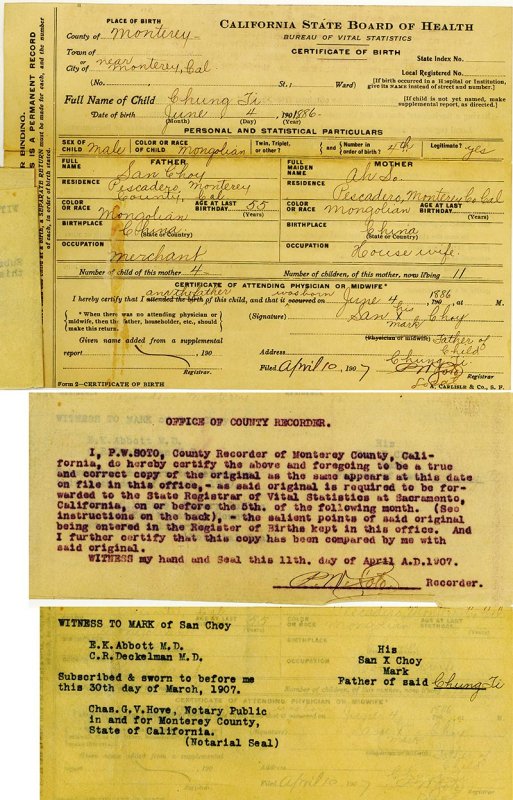 R BINDING.
IS A PERMANENT RECORD
at a birth, a SEPARATE RETURN must be made for each, and the number
of each, in order of birth stated.
PLACE OF BIRTH
CALIFORNIA STATE BOARD OF HEALTH
BUREAU OF VITAL STATISTICS
County of Monterey
CERTIFICATE OF BIRTH
Town of
State Index No.
City of near Monterey, Cal
Local Registered No.
(No. St.; Ward)
(If birth occurred in a Hospital or Institution, give its NAME instead of street and number.)
Full Name of Child Chung Ti
[If child is not yet named, make supplemental report, as directed.]
Date of birth June 4 1901886.
(Month) (Day) (Year)
PERSONAL AND STATISTICAL PARTICULARS
SEX OF CHILD male COLOR OR RACE OF CHILD Mongolian Twin, Triplet, or other? and Number in order of birth? 4th Legitimate? yes
FATHER
MOTHER
FULL NAME San Choy
FULL MAIDEN NAME Ah So.
RESIDENCE Pescadero, Monterey County, Cal
RESIDENCE Pescadero, Monterey Co. Cal
COLOR OR RACE Mongolian AGE AT LAST BIRTHDAY 55 (Years)
COLOR OR RACE Mongolian AGE AT LAST BIRTHDAY (Years)
BIRTHPLACE China (State or Country)
BIRTHPLACE China (State or Country)
OCCUPATION merchant
OCCUPATION House wife.
Number of child of this mother 4
Number of children, of this mother, now living 11
CERTIFICATE OF ATTENDING PHYSICIAN OR MIDWIFE*
I hereby certify that I attended the birth of this child, and that it occurred on was born June 4 1886 , 190 , at M.
* When there was no attending physician or midwife, then the father, householder, etc., should make this return.
(Signature) San X Choy
his
mark
(Physician or midwife) Father of Child
Given name added from a supplemental
report , 190
Address Chung Ti
Registrar.
Filed April 10, 1907 P W Soto
Registrar
Form 2—CERTIFICATE OF BIRTH
A. CARLISLE & CO., S. F.
OFFICE OF COUNTY RECORDER.
I, P.W.SOTO, County Recorder of Monterey County, Cali-
fornia, do hereby certify the above and foregoing to be a true
and correct copy of the original as the same appears at this date
on file in this office,- as said original is required to be for-
warded to the State Registrar of Vital Statistics at Sacramento,
California, on or before the 5th. of the following month. (See
instructions on the back), - the salient points of said original
being entered in the Register of Births kept in this office. And
I further certify that this copy has been compared by me with
said original.
WITNESS my hand and Seal this 11th. day of April A.D.1907.
P.W. Soto Recorder.
WITNESS TO MARK of San Choy
E.K.Abbott M.D.
C.R.Deckelman M.D.
His
San X Choy
Mark
Father of said Chung-Ti
Subscribed & sworn to before me
this 30th day of March, 1907.
Chas.G.V.Hove, Notary Public
in and for Monterey County,
State of California.
(Notarial Seal)